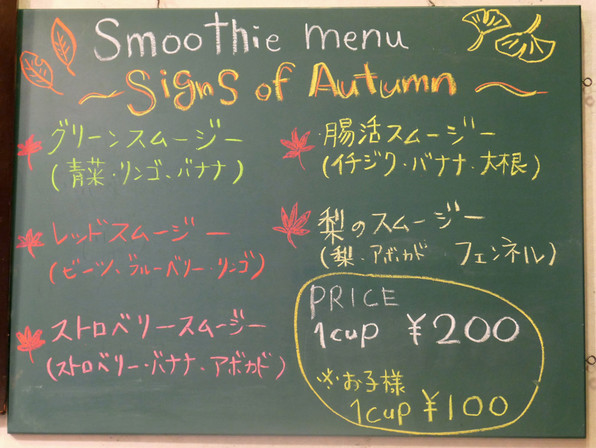 Smoothie menu
〜Signs of Autumn〜
グリーンスムージー
(青菜・リンゴ、バナナ)
レッドスムージー
(ビーツ、ブルーベリー・リンゴ)
ストロベリースムージー
(ストロベリー・バナナ、アボカド)
腸活スムージー
(イチジク・バナナ・大根)
梨のスムージー
(梨・アボカド フェンネル)
PRICE
1cup ¥200
※お子様
1cup ¥100